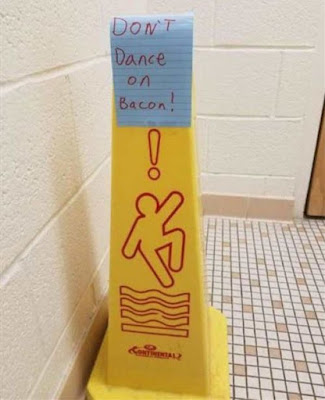 DON'T
Dance
on
Bacon!
!
CONTINENTAL